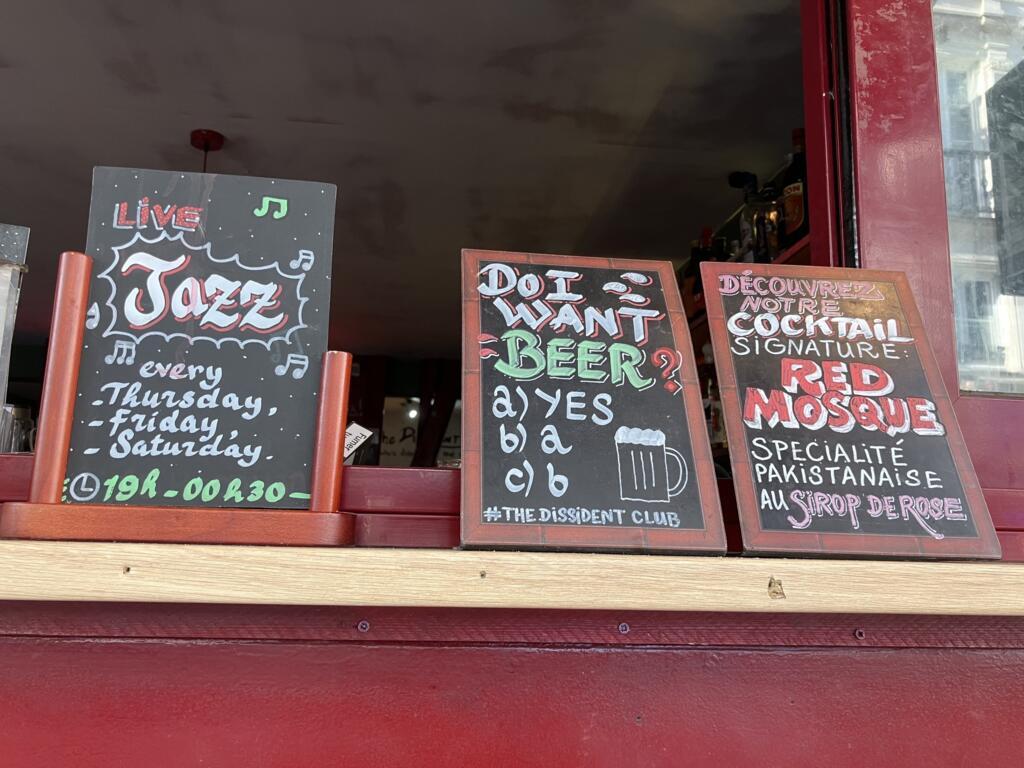 LIVE
Jazz
every
-Thursday,
-Friday,
-Saturday.
19h-00h30-
DO I
WANT
BEER?
a) YES
b) a
c) b
#THE.DISSIDENT CLUB
DÉCOUVREZ
NOTRE
COCKTAIL
SIGNATURE:
RED
MOSQUE
SPECIALITÉ
PAKISTANAISE
AU SIROP DE ROSE